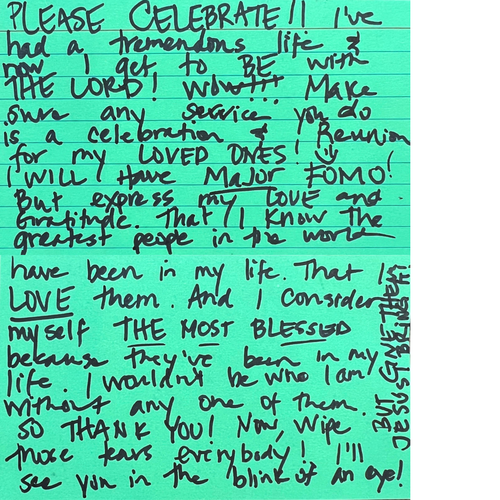 PLEASE CELEBRATE!! I've
had a tremendous life &
now I get to BE with
THE LORD! Wow!!! Make
sure any service you do
is a celebration & Reunion
for my LOVED ONES!
I WILL Have Major FOMO!
But express my LOVE and
Gratitude. That I Know the
greatest people in the world
have been in my life. That I
LOVE them. And I consider
myself THE MOST BLESSED
because they've been in my
life. I wouldn't be who I am
without any one of them.
SO THANK YOU! Now, wipe
those tears everybody! I'll
see you in the blink of an eye!
BUT GIVE THEM
JESUS! BRING IT!